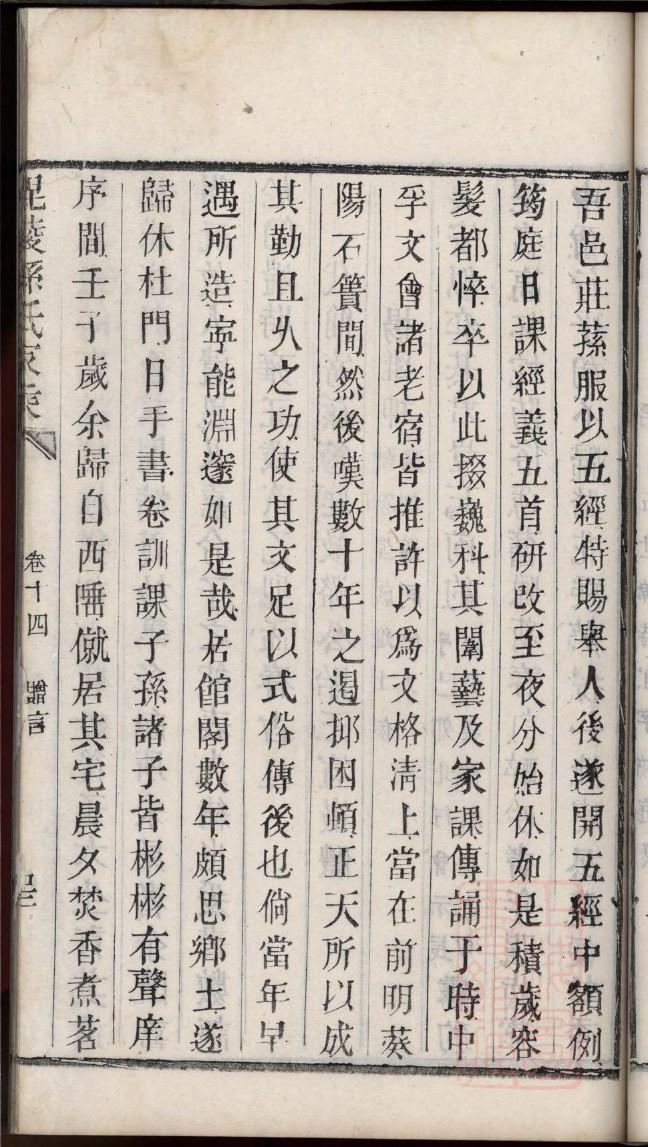 吾邑莊蓀服以五經特賜舉人後遂開五經中額例
筠庭日課經義五首研改至夜分始休如是積歲容
髮都悴卒以此掇巍科其闈藝及家課傳誦于時中
孚文會諸老宿皆推許以爲文格清上當在前明葵
陽石簣間然後嘆數十年之遏抑困頓正天所以成
其勤且久之功使其文足以式俗傳後也倘當年早
遇所造寧能淵邃如是哉居館閣數年頗思鄉土遂
歸休杜門日手書卷訓課子孫諸子皆彬彬有聲庠
序間壬子歲余歸自西陲僦居其宅晨夕焚香煮茗
毘陵孫氏家乘 卷十四 贈言